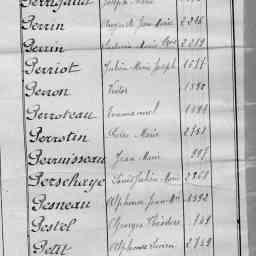 Perrigaud Joseph Marie
Perrin Auguste Jean Marie 2216
Perrin Marie 2219
Perriot Julien Marie Joseph 1577
Perron Victor 1590
Perroteau Emmanuel
Perrotin Marie 2761
Perruisseau Jean Marie 997
Perschaye Louis Julien Marie
Pesneau Alphonse Jean Mie 1592
Pestel Georges Théodore 749
Petit Alphonse Lucien 2749